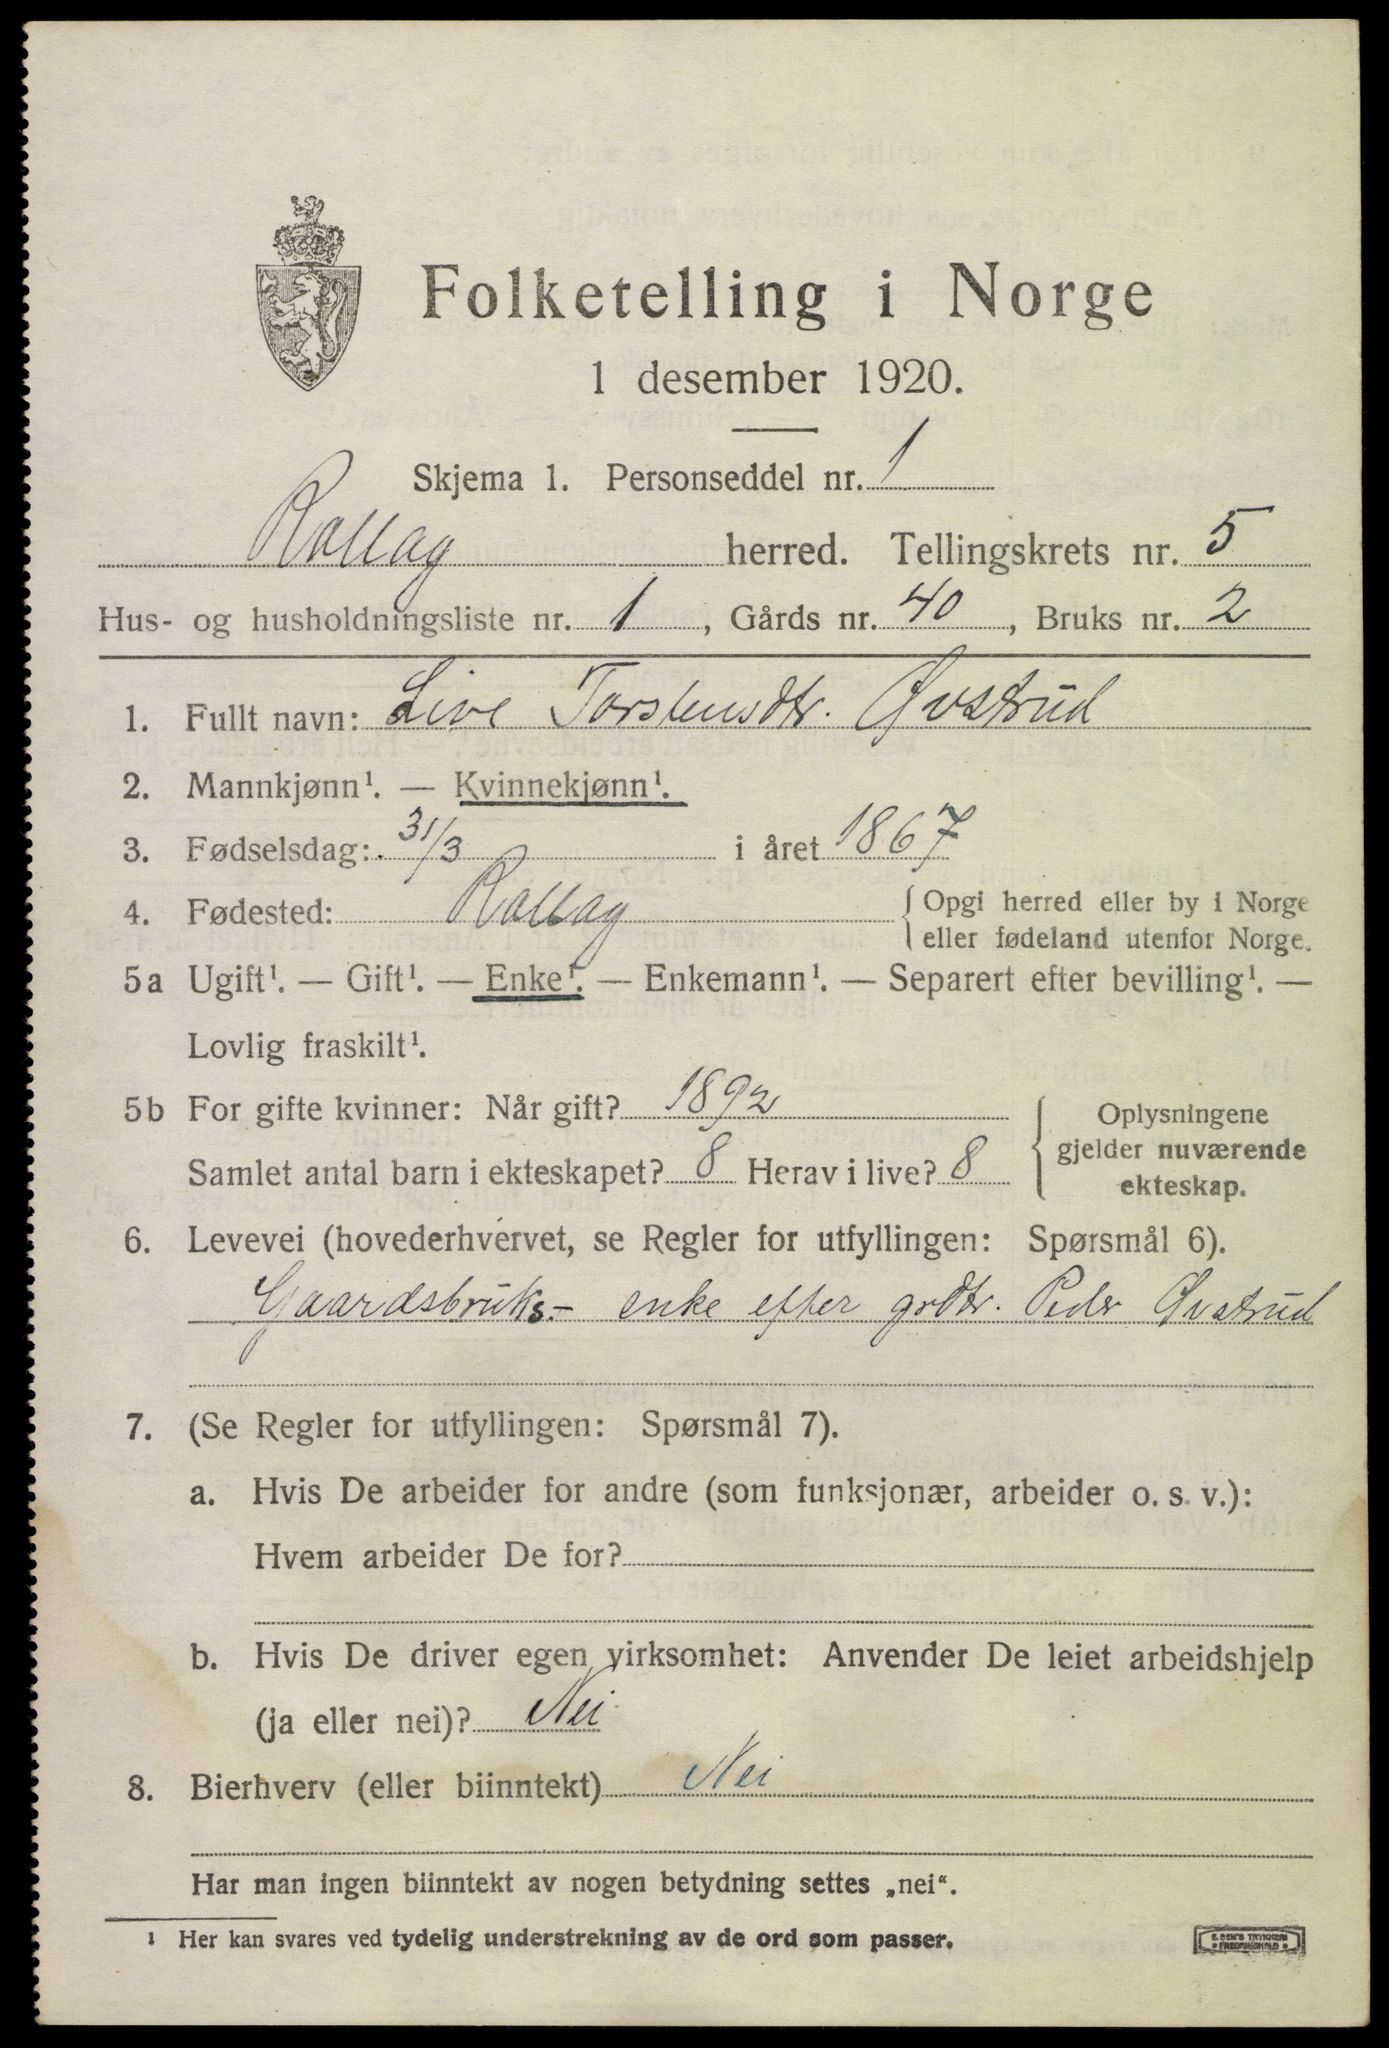 Folketelling i Norge
1 desember 1920.
Skjema 1. Personseddel nr. 1
Rollag herred. Tellingskrets nr. 5
Hus- og husholdningsliste nr. 1, Gårds nr. 40, Bruks nr. 2
1. Fullt navn: Live Torstensdtr. Øvstrud
2. Mannkjønn¹. — Kvinnekjønn¹.
3. Fødselsdag: 31/3 i året 1867
4. Fødested: Rollag { Opgi herred eller by i Norge
eller fødeland utenfor Norge.
5a Ugift¹. — Gift¹. — Enke¹. — Enkemann¹. — Separert efter bevilling¹. —
Lovlig fraskilt¹.
5b For gifte kvinner: Når gift? 1892
Samlet antal barn i ekteskapet? 8 Herav i live? 8
{ Oplysningene
gjelder nuværende
ekteskap.
6. Levevei (hovederhvervet, se Regler for utfyllingen: Spørsmål 6).
Gaardsbruks- enke efter grdbr. Peder Øvstrud
7. (Se Regler for utfyllingen: Spørsmål 7).
a. Hvis De arbeider for andre (som funksjonær, arbeider o. s. v.):
Hvem arbeider De for?
b. Hvis De driver egen virksomhet: Anvender De leiet arbeidshjelp
(ja eller nei)? Nei
8. Bierhverv (eller biinntekt) Nei
Har man ingen biinntekt av nogen betydning settes „nei“.
¹ Her kan svares ved tydelig understrekning av de ord som passer.